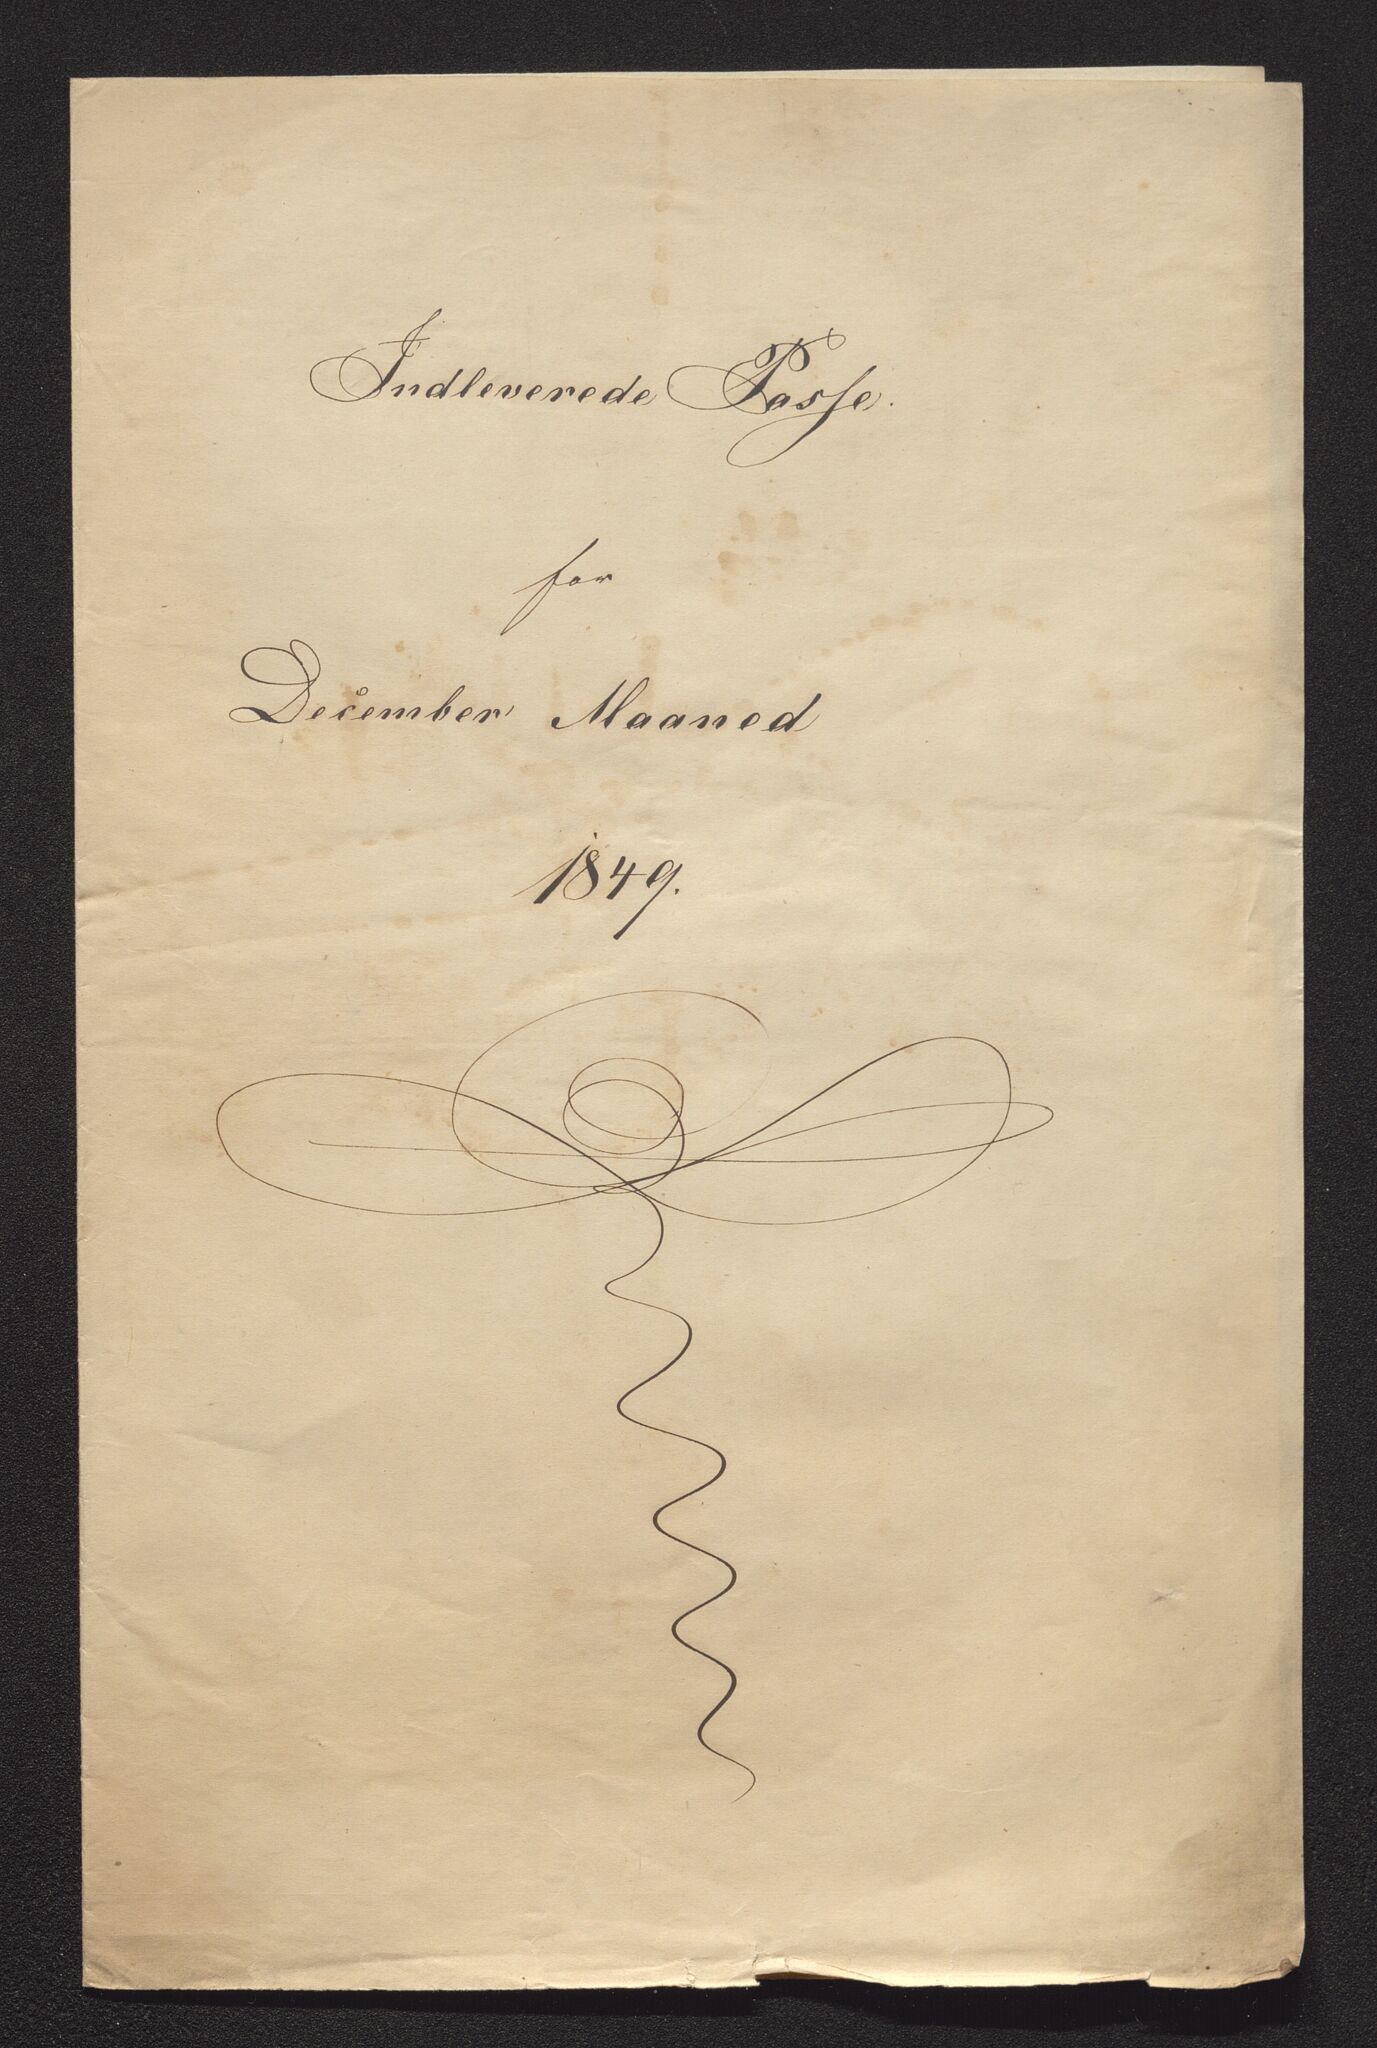 Indleverede Passe.
for
December Maaned
1849.